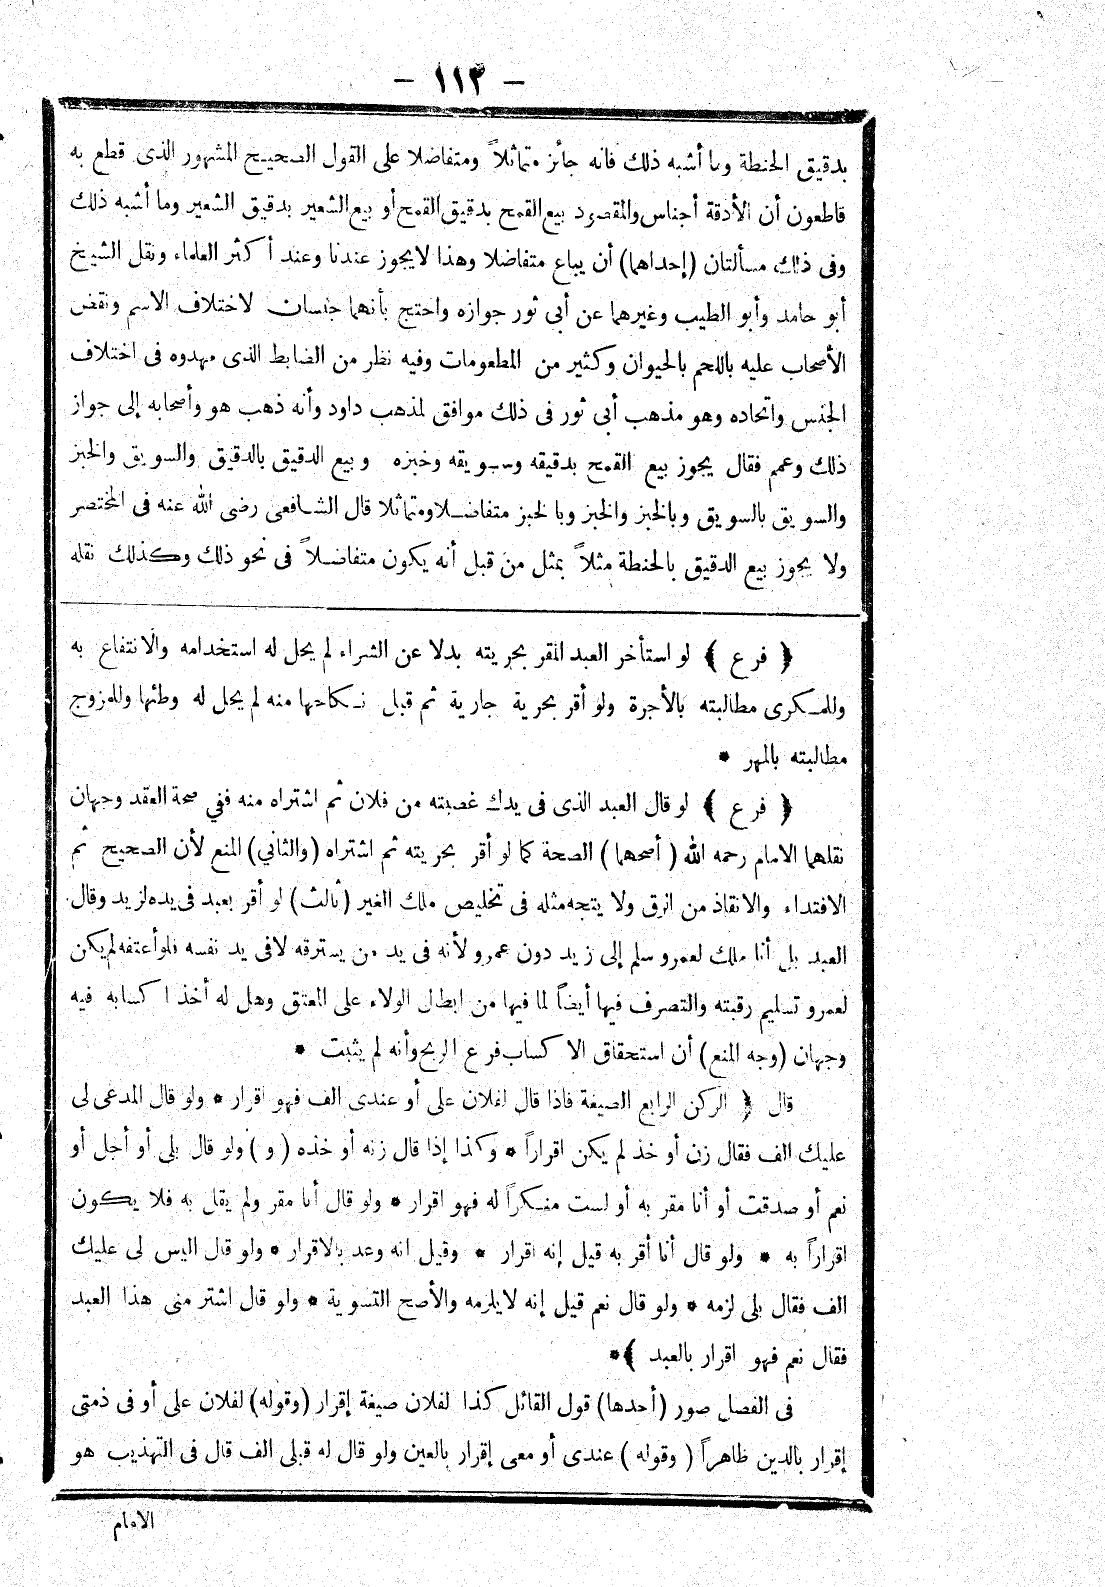 – ١١٣ –
بدقيق الحنطة وما أشبه ذلك فانه جائز متماثلاً ومتفاضلا على القول الصحيح المشهور الذى قطع به
قاطعون أن الأدقة أجناس والمقصود بيع القمح بدقيق القمح أو بيع الشعير بدقيق الشعير وما أشبه ذلك
وفى ذلك مسألتان (إحداهما) أن يباع متفاضلا وهذا لا يجوز عندنا وعند أكثر العلماء ونقل الشيخ
أبو حامد وأبو الطيب وغيرهما عن أبى ثور جوازه واحتج بأنهما جنسان لاختلاف الاسم ونقض
الأصحاب عليه باللحم بالحيوان وكثير من المطعومات وفيه نظر من الضابط الذى مهدوه فى اختلاف
الجنس واتحاده وهو مذهب أبى ثور فى ذلك موافق لمذهب داود وأنه ذهب هو وأصحابه إلى جواز
ذلك وعمم فقال يجوز بيع القمح بدقيقه وسويقه وخبزه وبيع الدقيق بالدقيق والسويق والخبز
والسويق بالسويق وبالخبز والخبز وبالخبز متفاضلا ومتماثلا قال الشافعى رضى الله عنه فى المختصر
ولا يجوز بيع الدقيق بالحنطة مثلاً بمثل من قبل أنه يكون متفاضلاً فى نحو ذلك وكذلك نقله
﴿ فرع ﴾ لو استأخر العبد المقر بحريته بدلا عن الشراء لم يحل له استخدامه والانتفاع به
وللمكرى مطالبته بالأجرة ولو أقر بحرية جارية ثم قبل نكاحها منه لم يحل له وطئها وللمزوج
مطالبته بالمهر *
﴿ فرع ﴾ لو قال العبد الذى فى يدك غصبته من فلان ثم اشتراه منه ففي صحة العقد وجهان
نقلهما الامام رحمه الله (أصحهما) الصحة كما لو أقر بحريته ثم اشتراه (والثاني) المنع لأن الصحيح ثم
الافتداء والانقاذ من الرق ولا يتجه مثله فى تخليص ملك الغير (ثالث) لو أقر بعبد فى يده لزيد وقال
العبد بل أنا ملك لعمرو سلم إلى زيد دون عمرو لأنه فى يد من يسترقه لا فى يد نفسه فلو أعتقه لم يكن
لعمرو تسليم رقبته والتصرف فيها أيضاً لما فيها من ابطال الولاء على العتق وهل له أخذ اكسابه فيه
وجهان (وجه المنع) أن استحقاق الاكساب فرع الربح وأنه لم يثبت *
قال ﴿ الركن الرابع الصيغة فاذا قال لفلان على أو عندى الف فهو اقرار * ولو قال المدعى لى
عليك الف فقال زن أو خذ لم يكن اقراراً * وكذا إذا قال زنه أو خذه ( و ) ولو قال بلى أو أجل أو
نعم أو صدقت أو أنا مقر به أو لست منكراً له فهو اقرار * ولو قال أنا مقر ولم يقل به فلا يكون
اقراراً به * ولو قال أنا أقر به قيل إنه اقرار * وقيل انه وعد بالاقرار * ولو قال اليس لى عليك
الف فقال بلى لزمه * ولو قال نعم قيل إنه لا يلزمه والأصح التسوية * ولو قال اشتر منى هذا العبد
فقال نعم فهو اقرار بالعبد ﴾*
فى الفصل صور (أحدها) قول القائل كذا لفلان صيغة إقرار (وقوله) لفلان على أو فى ذمتى
إقرار بالدين ظاهراً ( وقوله ) عندى أو معى إقرار بالعين ولو قال له قبلى الف قال فى التهذيب هو
الامام